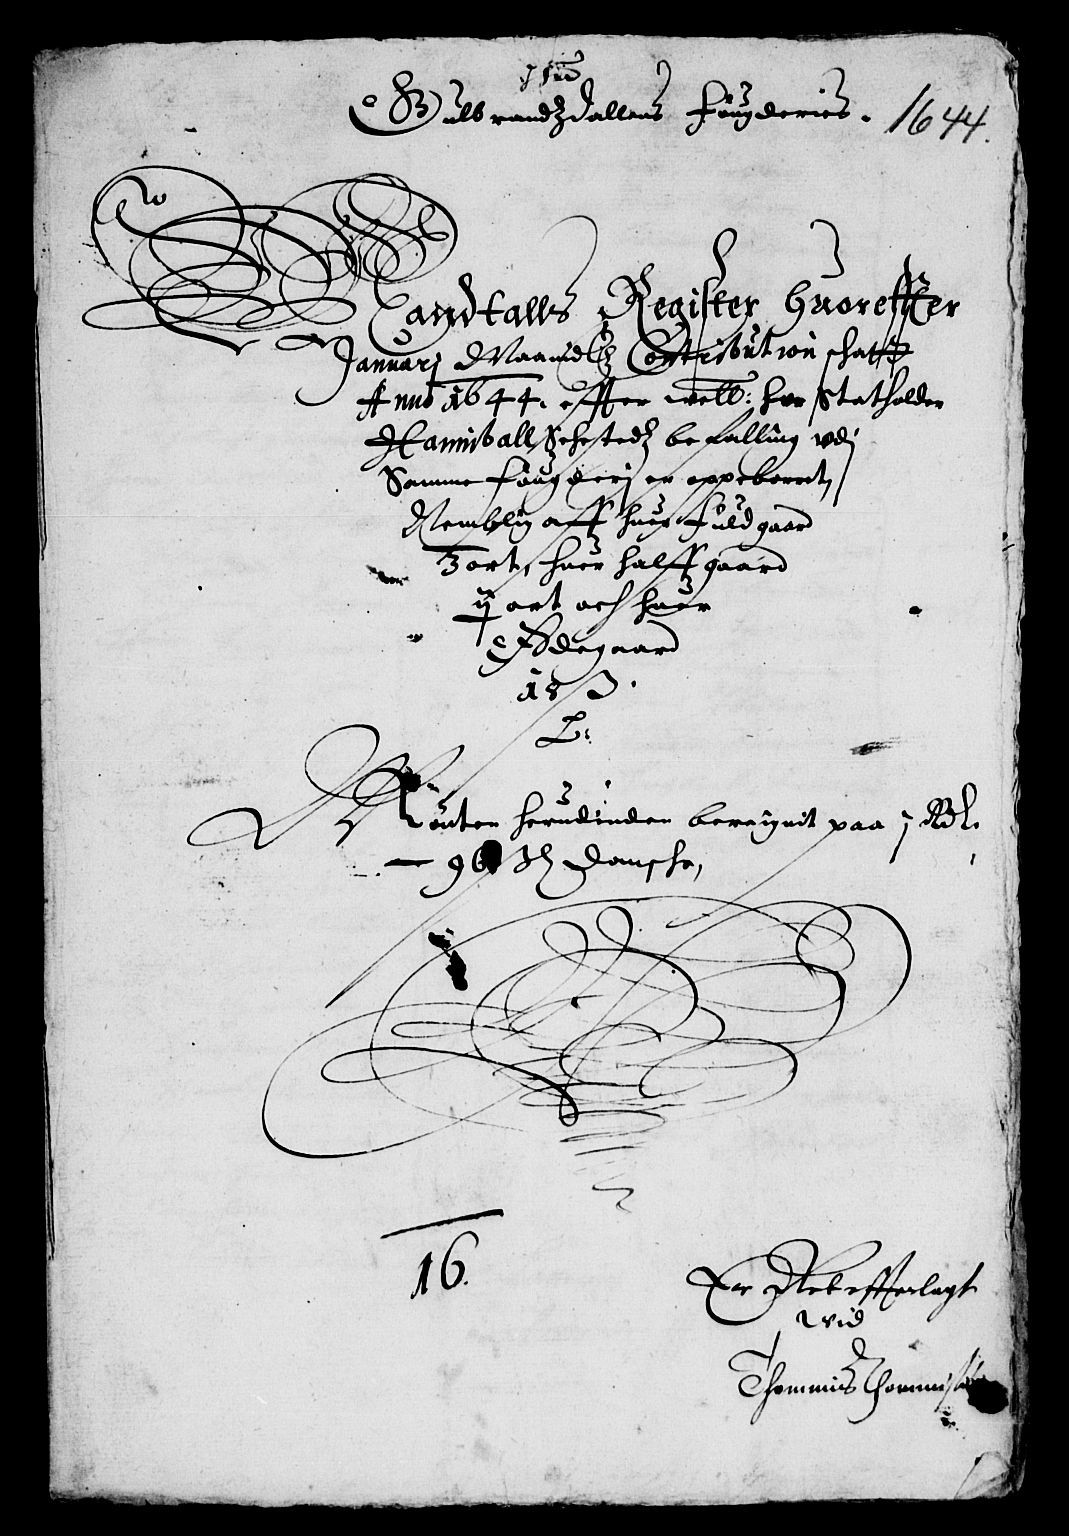 Gulbrandtzdallens fougderies. 1644.
Mandtalls Register huoreffter
Januarj Maanidtz Contribution schatt
Anno 1644. effter welb: her Statholder
Hanniball Sehestedtz befalling vdj
Samme fougderj er oppeboret,
Nemblig aff huer fuldgaard
3 ort, huer halffgaard
ij ort och huer
Ødegaard
18 s.
Mønten herudinden beregnit paa j Rdl.
96 sh danshe,
16.
Er Ret efferlagt
wid
Thommis Thommis